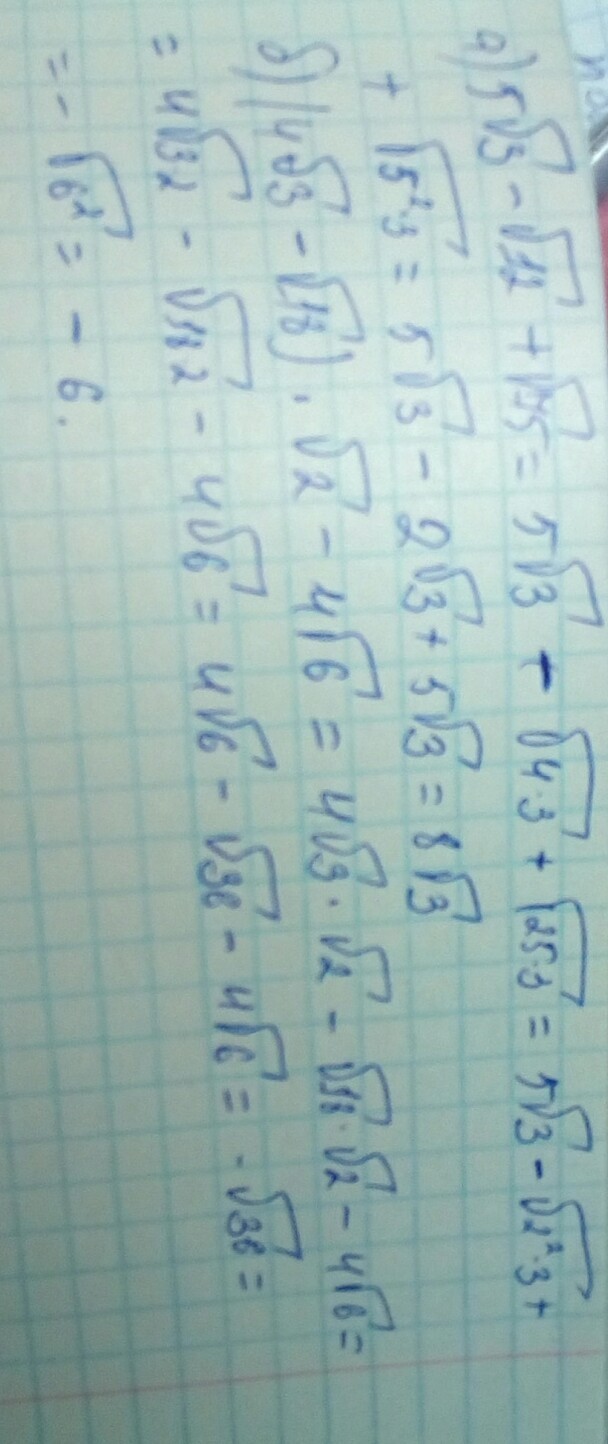 а) 5√3 - √12 + √75 = 5√3 - √4·3 + √25·3 = 5√3 - √2²·3 +
+ √5²·3 = 5√3 - 2√3 + 5√3 = 8√3
б) (4√3 - √18) · √2 - 4√6 = 4√3 · √2 - √18 · √2 - 4√6 =
= 4√32 - √18 2 - 4√6 = 4√6 - √36 - 4√6 = -√36 =
= -√6² = - 6.